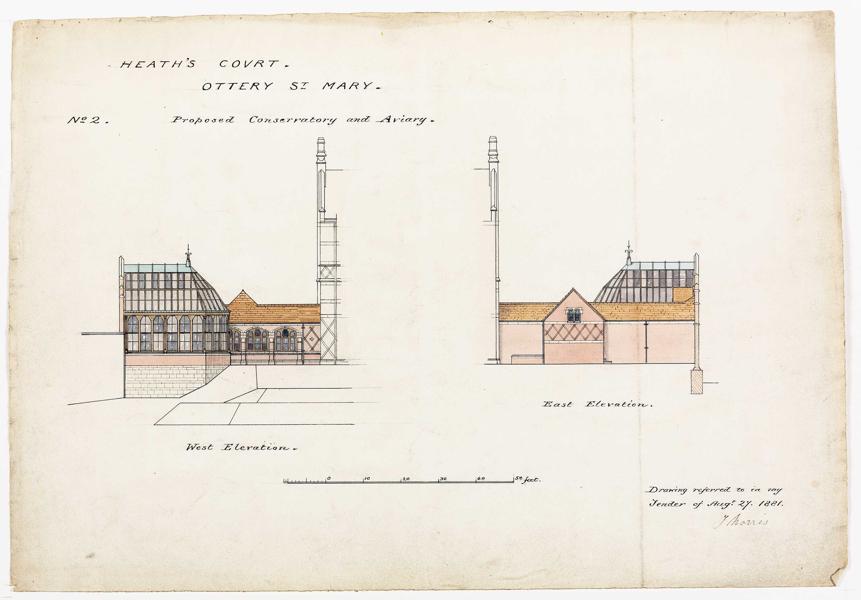 HEATH'S COVRT.
OTTERY ST MARY.
No 2. Proposed Conservatory and Aviary.
East Elevation.
West Elevation.
0 10 20 30 40 50 feet.
Drawing referred to in my
Tender of Augt 27. 1881.
J Morris